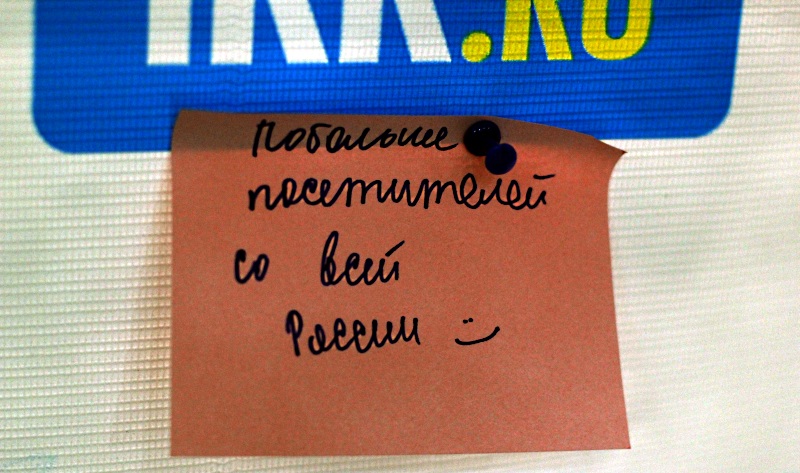 .RU
Побольше
посетителей
со всей
России :)